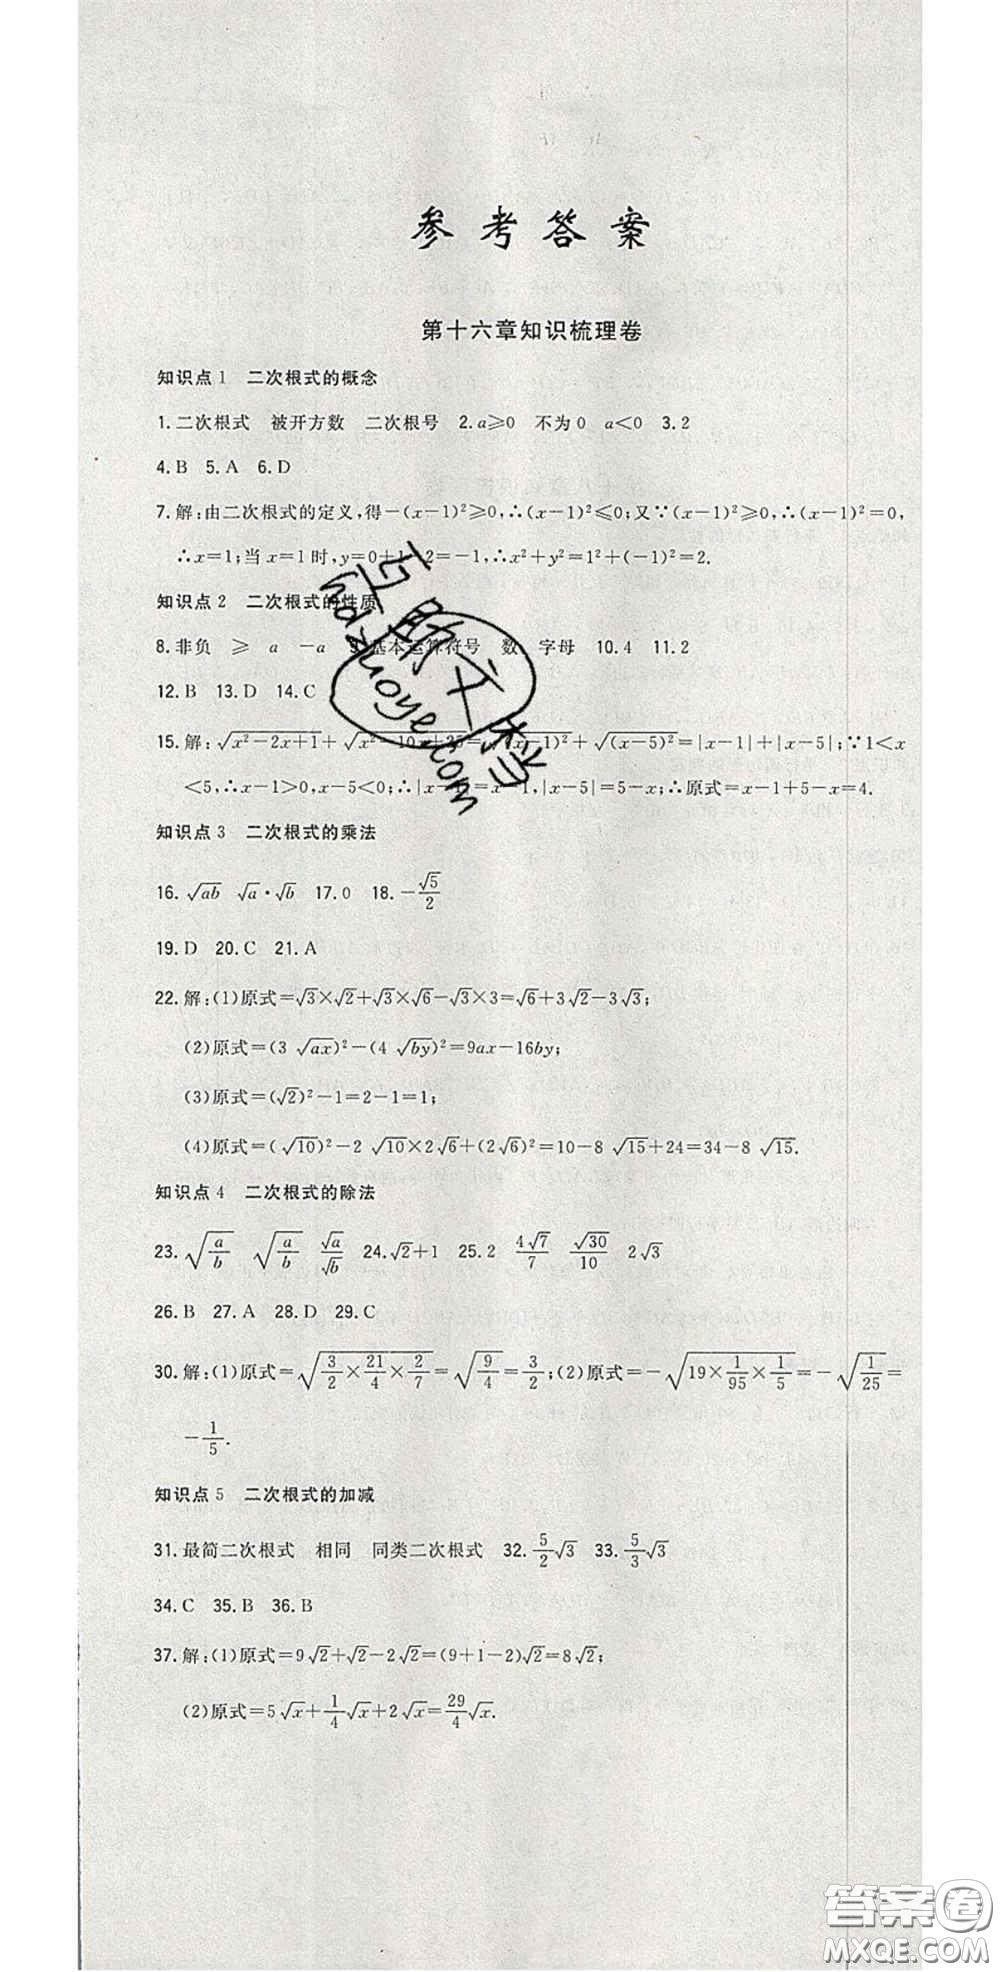 参考答案
第十六章知识梳理卷
知识点1 二次根式的概念
1.二次根式 被开方数 二次根号 2.a≥0 不为0 a<0 3.2
4.B 5.A 6.D
7.解:由二次根式的定义,得-(x-1)²≥0,∴(x-1)²≤0;又∵(x-1)²≥0,∴(x-1)²=0,
∴x=1;当x=1时,y=0+1-2=-1,∴x²+y²=1²+(-1)²=2.
知识点2 二次根式的性质
8.非负 ≥ a -a 9.基本运算符号 数 字母 10.4 11.2
12.B 13.D 14.C
15.解:√(x²-2x+1)+√(x²-10x+25)=√((x-1)²)+√((x-5)²)=|x-1|+|x-5|;∵1<x
<5,∴x-1>0,x-5<0;∴|x-1|=x-1,|x-5|=5-x;∴原式=x-1+5-x=4.
知识点3 二次根式的乘法
16.√(ab) √a·√b 17.0 18.-√5/2
19.D 20.C 21.A
22.解:(1)原式=√3×√2+√3×√6-√3×3=√6+3√2-3√3;
(2)原式=(3√(ax))²-(4√(by))²=9ax-16by;
(3)原式=(√2)²-1=2-1=1;
(4)原式=(√10)²-2√10×2√6+(2√6)²=10-8√15+24=34-8√15.
知识点4 二次根式的除法
23.√(a/b) √(a/b) √a/√b 24.√2+1 25.2 4√7/7 √30/10 2√3
26.B 27.A 28.D 29.C
30.解:(1)原式=√(3/2×21/4×2/7)=√(9/4)=3/2;(2)原式=-√(19×1/95×1/5)=-√(1/25)=
-1/5.
知识点5 二次根式的加减
31.最简二次根式 相同 同类二次根式 32.5/2√3 33.5/3√3
34.C 35.B 36.B
37.解:(1)原式=9√2+√2-2√2=(9+1-2)√2=8√2;
(2)原式=5√x+1/4√x+2√x=29/4√x.
互联文档
hdzuoye.com
答案圈
MXQE.COM